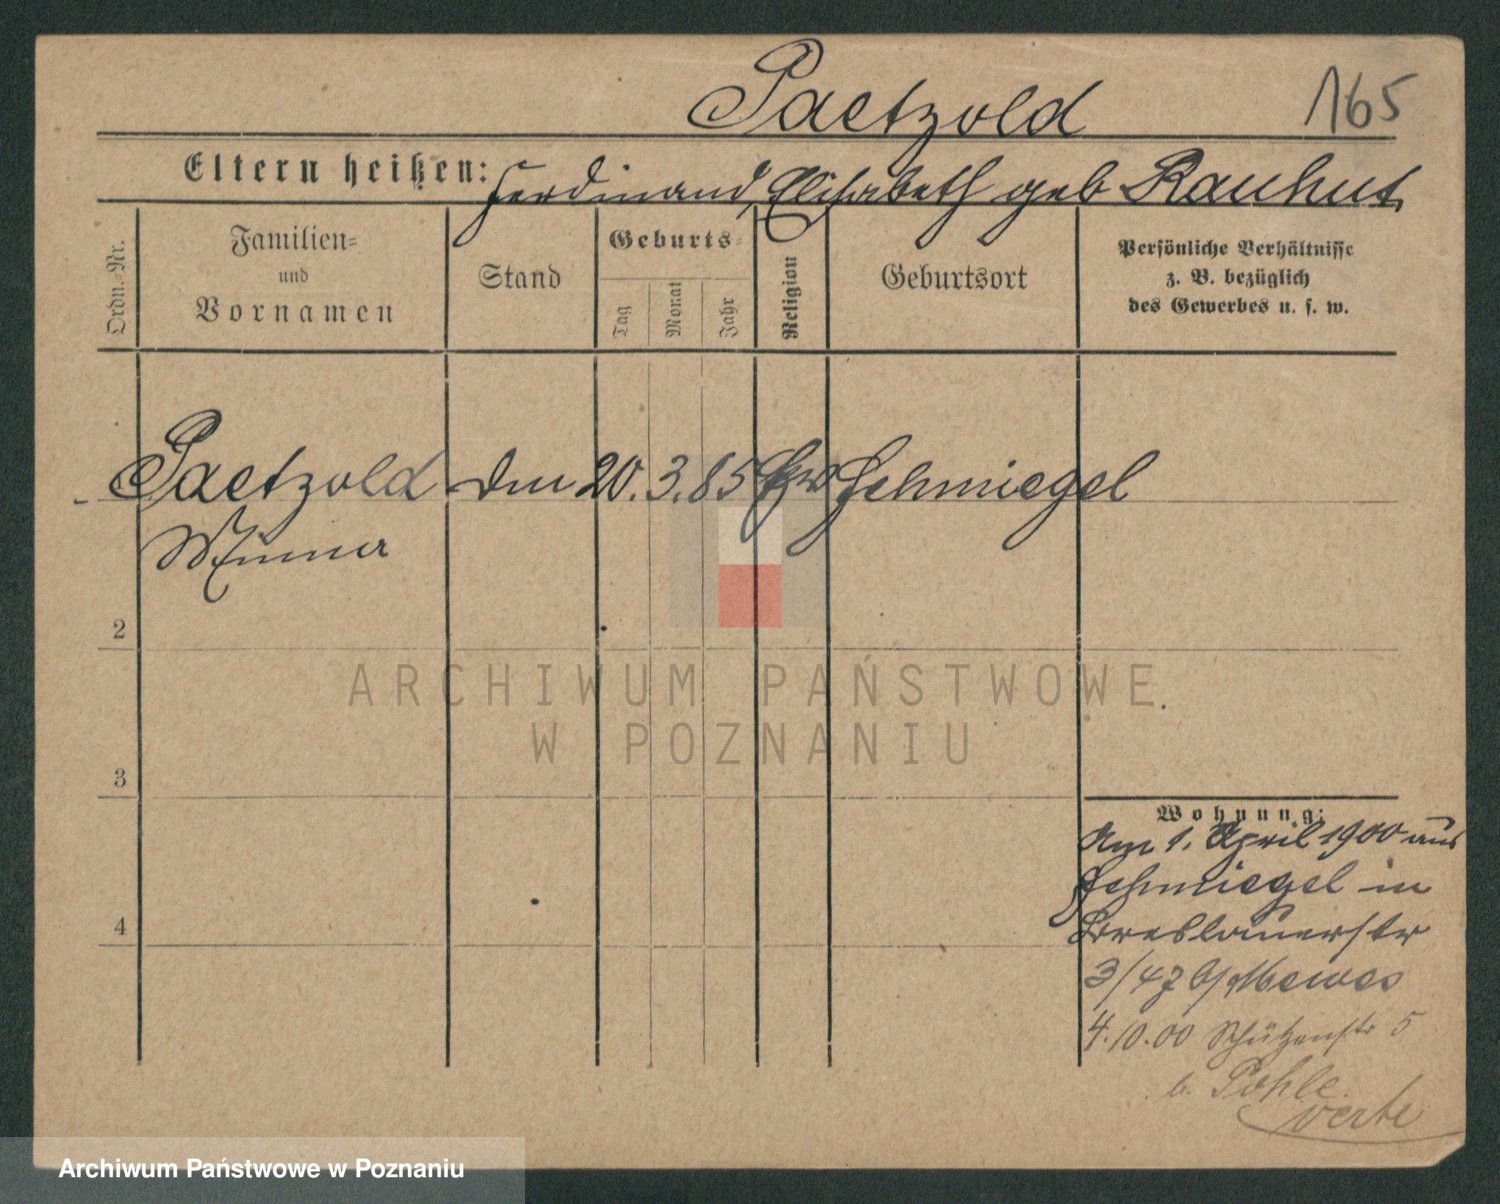 Paetzold 165
Eltern heißen: Ferdinand, Elisabeth geb Rauhut
Ordn.-Nr.
Familien-
und
Vornamen
Stand
Geburts-
Tag
Monat
Jahr
Religion
Geburtsort
Persönliche Verhältnisse
z. B. bezüglich
des Gewerbes u. s. w.
Paetzold 20. 3. 85 Schmiegel
Minna
2
3
4
ARCHIWUM PAŃSTWOWE
W POZNANIU
Wohnung:
Am 1. April 1900 aus
Schmiegel in
Breslauerstr
3/47 b/ Mewes
4.10.00 Schützenstr 5
b. Pohle.
verte
Archiwum Państwowe w Poznaniu